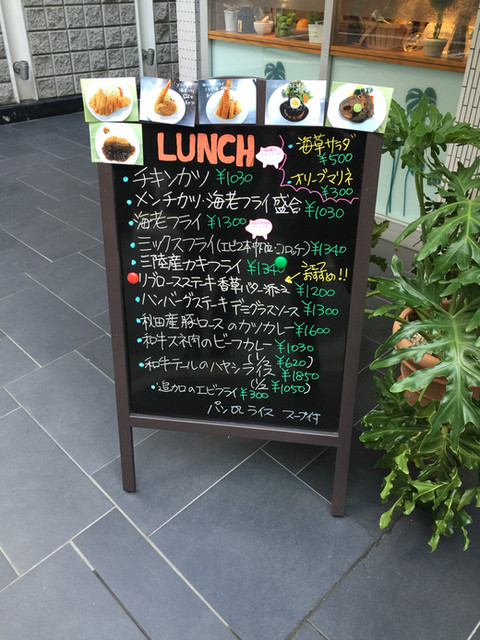 LUNCH
・海草サラダ
¥500
・オリーブマリネ
¥300
・チキンカツ ¥1030
・メンチカツ・海老フライ盛合 ¥1030
・海老フライ ¥1300
・ミックスフライ(エビ2本・帆立・コロッケ) ¥1340
・三陸産カキフライ ¥1340
シェフ
おすすめ!!
・リブロースステーキ香草バター添え ¥1200
・ハンバーグステーキデミグラスソース ¥1300
・秋田産豚ロースのカツカレー ¥1600
・和牛スネ肉のビーフカレー ¥1030
(1/2 ¥620)
・和牛テールのハヤシライス ¥1850
(1/2 ¥1050)
・追加のエビフライ ¥300
パン or ライス スープ付